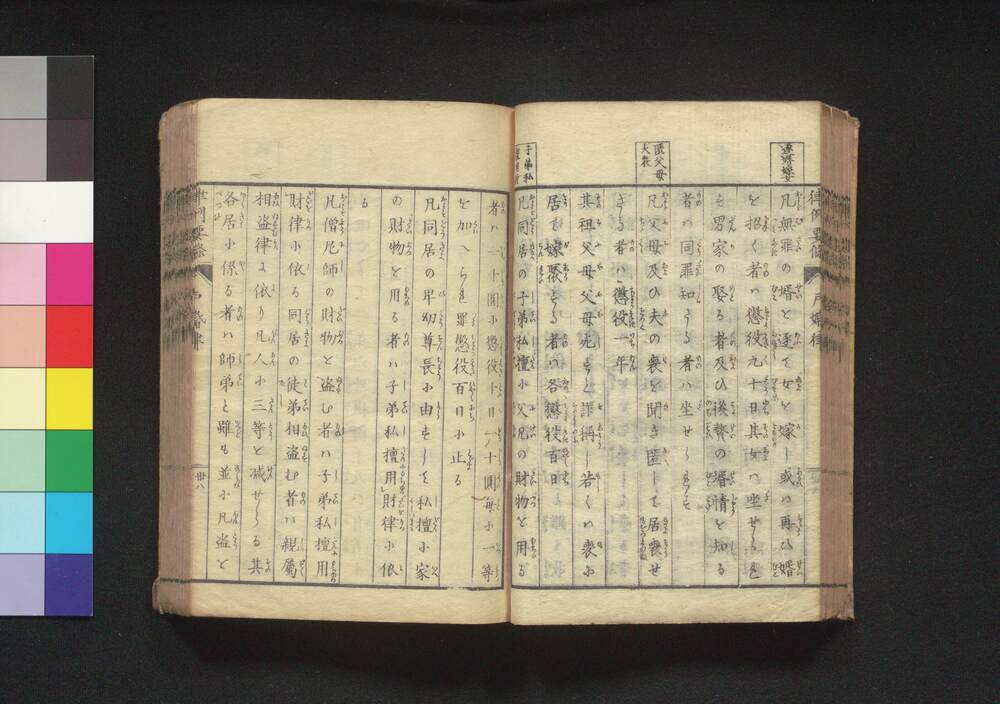 凡無罪の婿を逐て女を嫁し或ハ再ひ婿
を招く者ハ懲役九十日其女ハ坐せす
男家の娶る者及ひ後贅の婿情を知る
者ハ同罪知らさる者ハ坐せす
匿父母
夫喪
凡父母及ひ夫の喪を聞き匿して居喪せ
さる者ハ懲役一年
其祖父母父母死すと詐稱し若くハ喪に
居て嫁娶する者ハ各懲役百日
子弟私
凡同居の子弟私擅に父兄の財物を用る
者ハ一十圓に懲役十日一十圓毎に一等
を加へ
罪懲役百日に止る
凡同居の卑幼尊長に由すして私擅に家
の財物を用る者ハ子弟私擅用財律に依
る
凡僧尼師の財物を盗む者ハ子弟私擅用
財律に依る同居の徒弟相盗む者ハ親屬
相盗律に依り凡人に三等を减せらる其
各居に係る者ハ師弟と雖も並に凡盗と
戸婚律
卅八